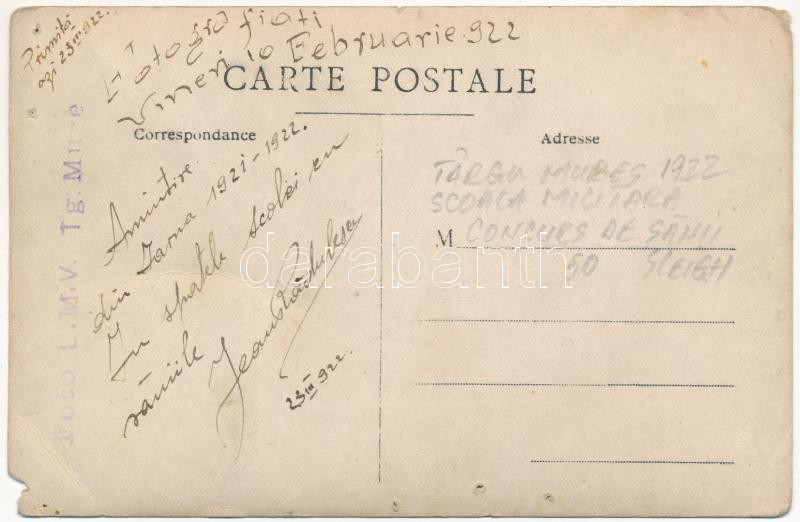 Primită
azi 23 III 922.
Fotografiati
Vineri 10 Februarie 922
CARTE POSTALE
Correspondance
Adresse
Amintire
din Iarna 1921-1922.
În spatele scolei cu
săniile
Jean Rădulescu
23 III 922.
Foto L.M.V. Tg. Mure
TÂRGU MUREȘ 1922
SCOALA MILITARA
M
CONCURS DE SĂNII
50 SLEIGH
darabanth
www.darabanth.com